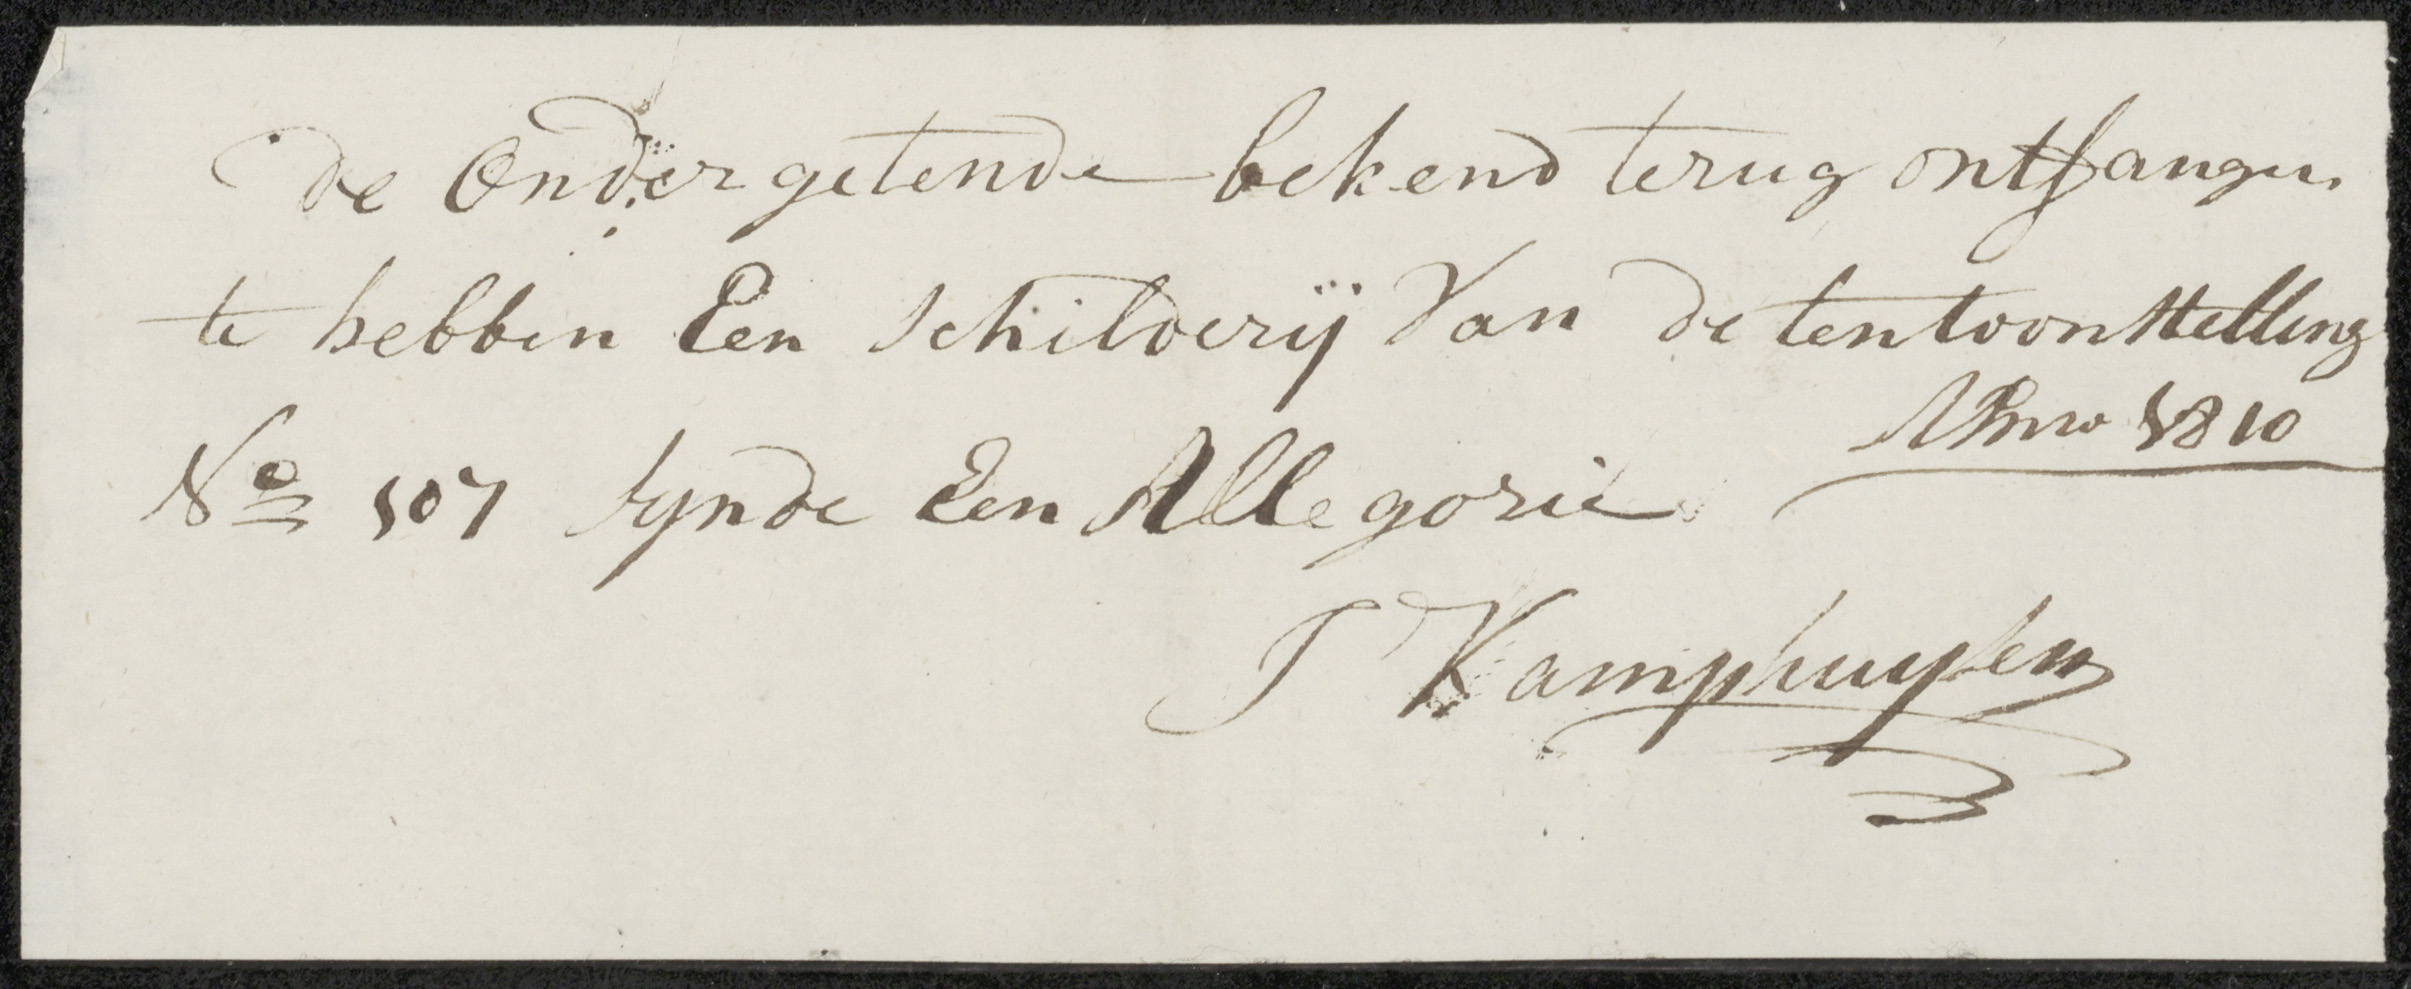 De Ondergetende bekend terug ontfangen
te hebben Een Schilderij Van de tentoonstelling
Anno 1810
No 107 synde Een Allegorie
J Kamphuysen